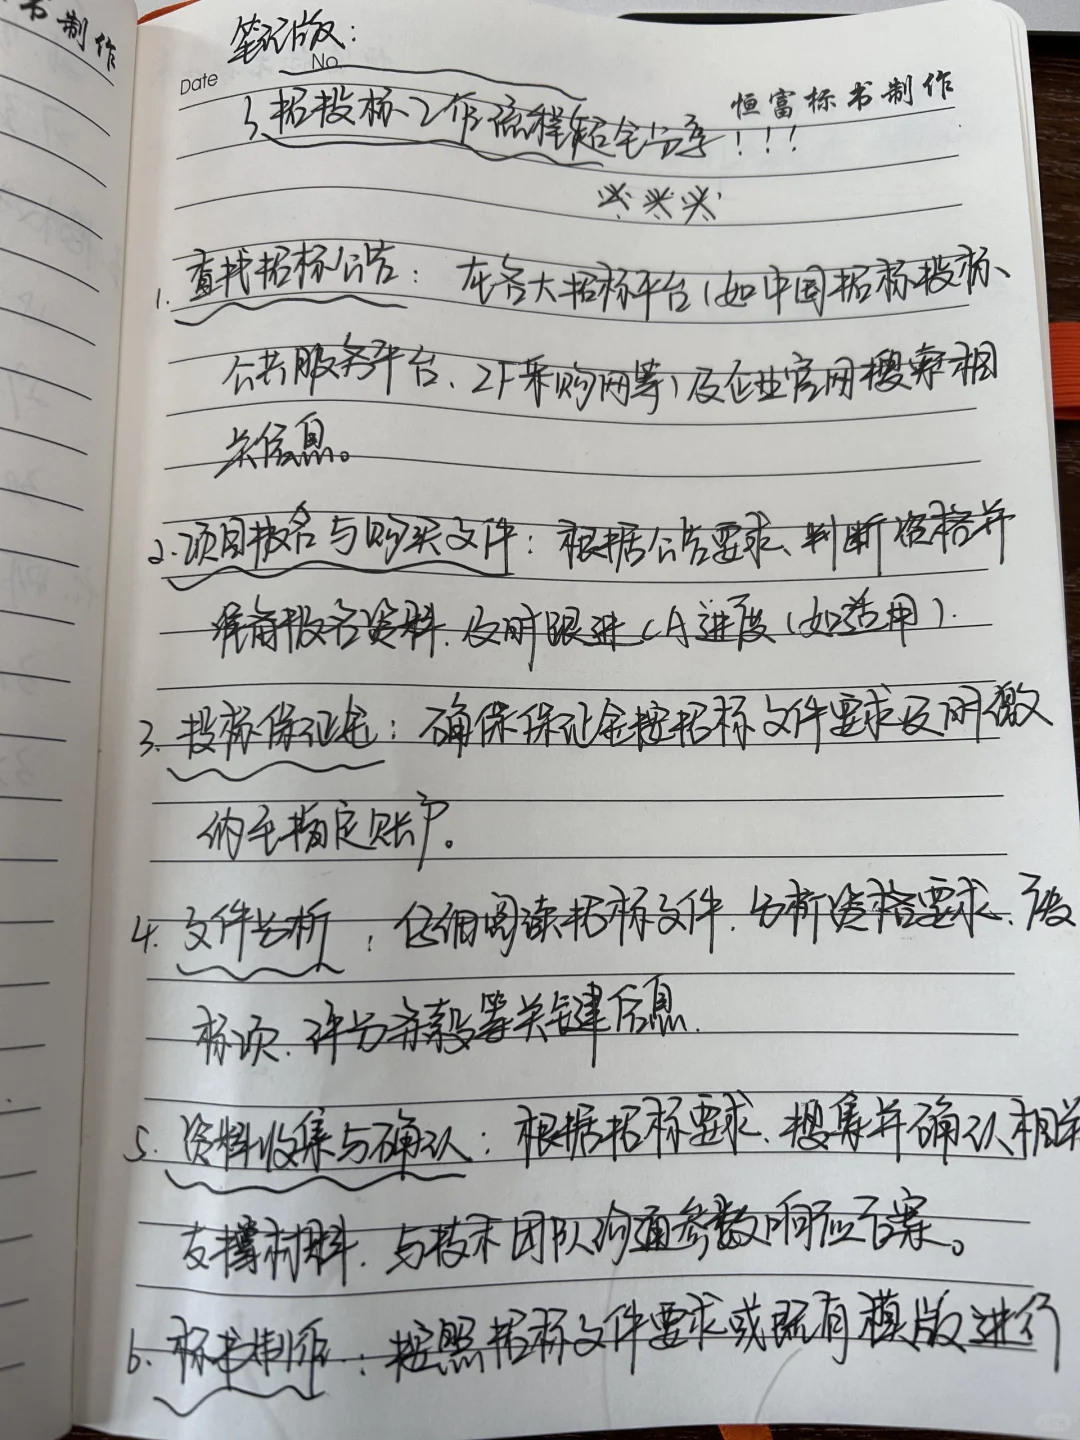 书制作
笔记版：
Date
No.
恒富标书制作
招投标工作流程超全分享！！！
1. 查找招标公告：在各大招标平台（如中国招标投标、
公共服务平台、ZF采购网等）及企业官网搜索相
关信息。
2. 项目报名与购买文件：根据公告要求、判断资格并
准备报名资料，及时跟进CA进度（如适用）.
3. 投标保证金：确保保证金按招标文件要求及时缴
纳至指定账户。
4. 文件分析：仔细阅读招标文件，分析资格要求、废
标项、评分条款等关键信息.
5. 资料收集与确认：根据招标要求，搜集并确认相关
支撑材料，与技术团队沟通参数响应方案。
6. 标书制作：按照招标文件要求或既有模版进行